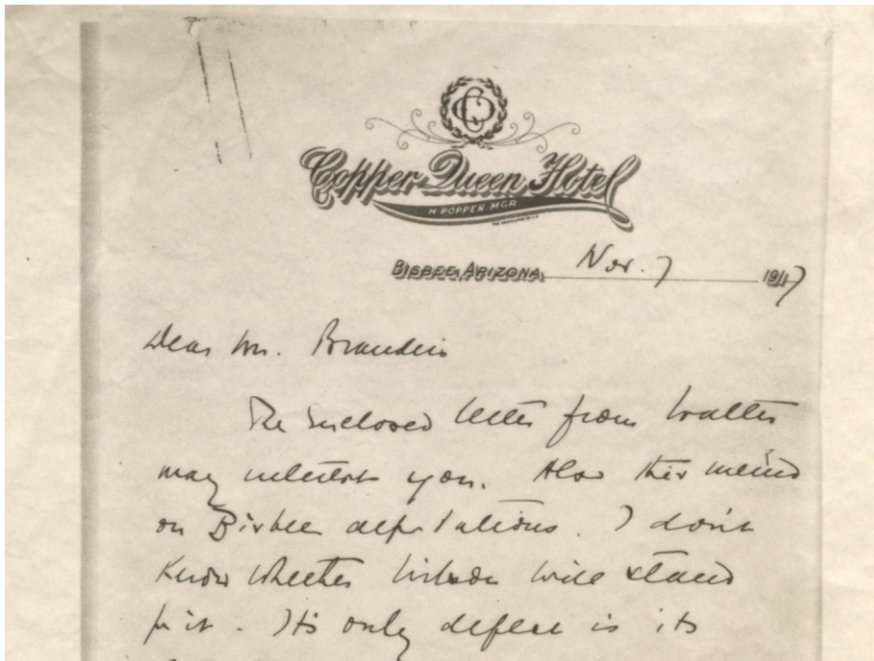 Copper Queen Hotel
H POPPER. MGR
BISBEE, ARIZONA Nov. 7 1917
Dear Mr. Brandeis
The enclosed letter from Walter
may interest you. Also this memo
on Bisbee deportations. I don't
know whether Wilson will stand
for it. Its only defect is its